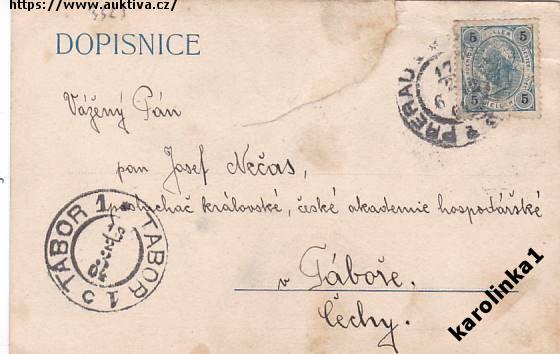 https://www.auktiva.cz/
DOPISNICE
5 5
5 5
PRERAU
Vážený Pán
pan Josef Nečas,
posluchač královské, české akademie hospodářské
v Táboře.
Čechy.
TÁBOR 1 TABOR 1
karolinka1